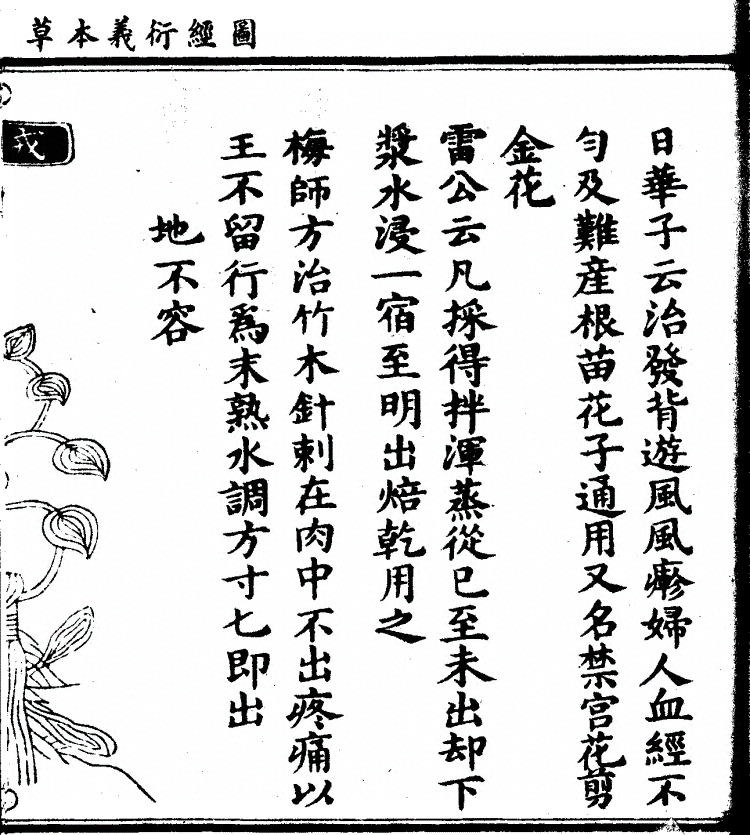 圖經衍義本草
日華子云治發背遊風風瘮婦人血經不
勻及難產根苗花子通用又名禁宮花剪
金花
雷公云凡採得拌渾蒸從巳至未出却下
漿水浸一宿至明出焙乾用之
梅師方治竹木針刺在肉中不出疼痛以
王不留行爲末熟水調方寸七即出
地不容
戎